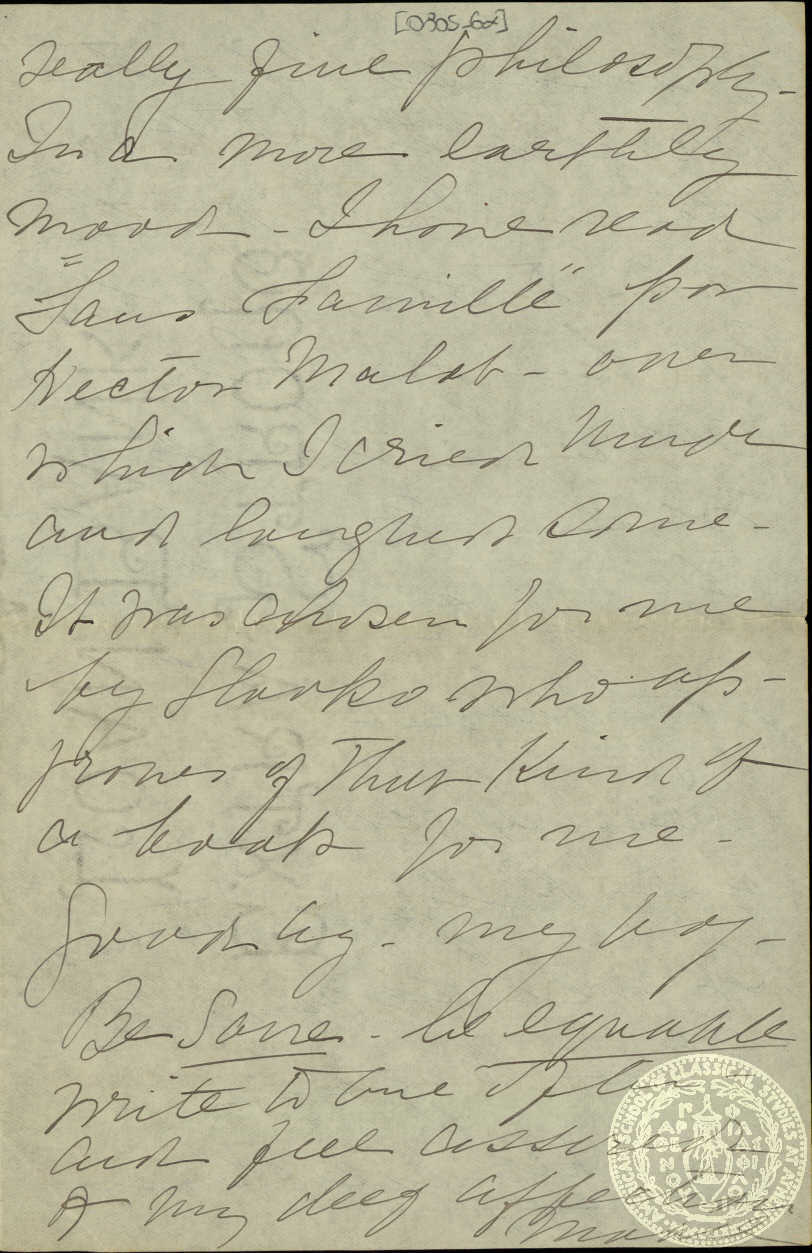 [0305-62]
really fine philosophy -
In a more earthly
mood - I have read
"Sans Famille" par
Hector Malot - over
which I cried much
and laughed some -
It was chosen for me
by Slavko who ap-
proves of that kind of
a book for me -
Good by - my boy -
Be Sane - be equable
write to me often -
and feel assured
of my deep affection
AMERICAN SCHOOL OF CLASSICAL STUDIES AT ATHENS